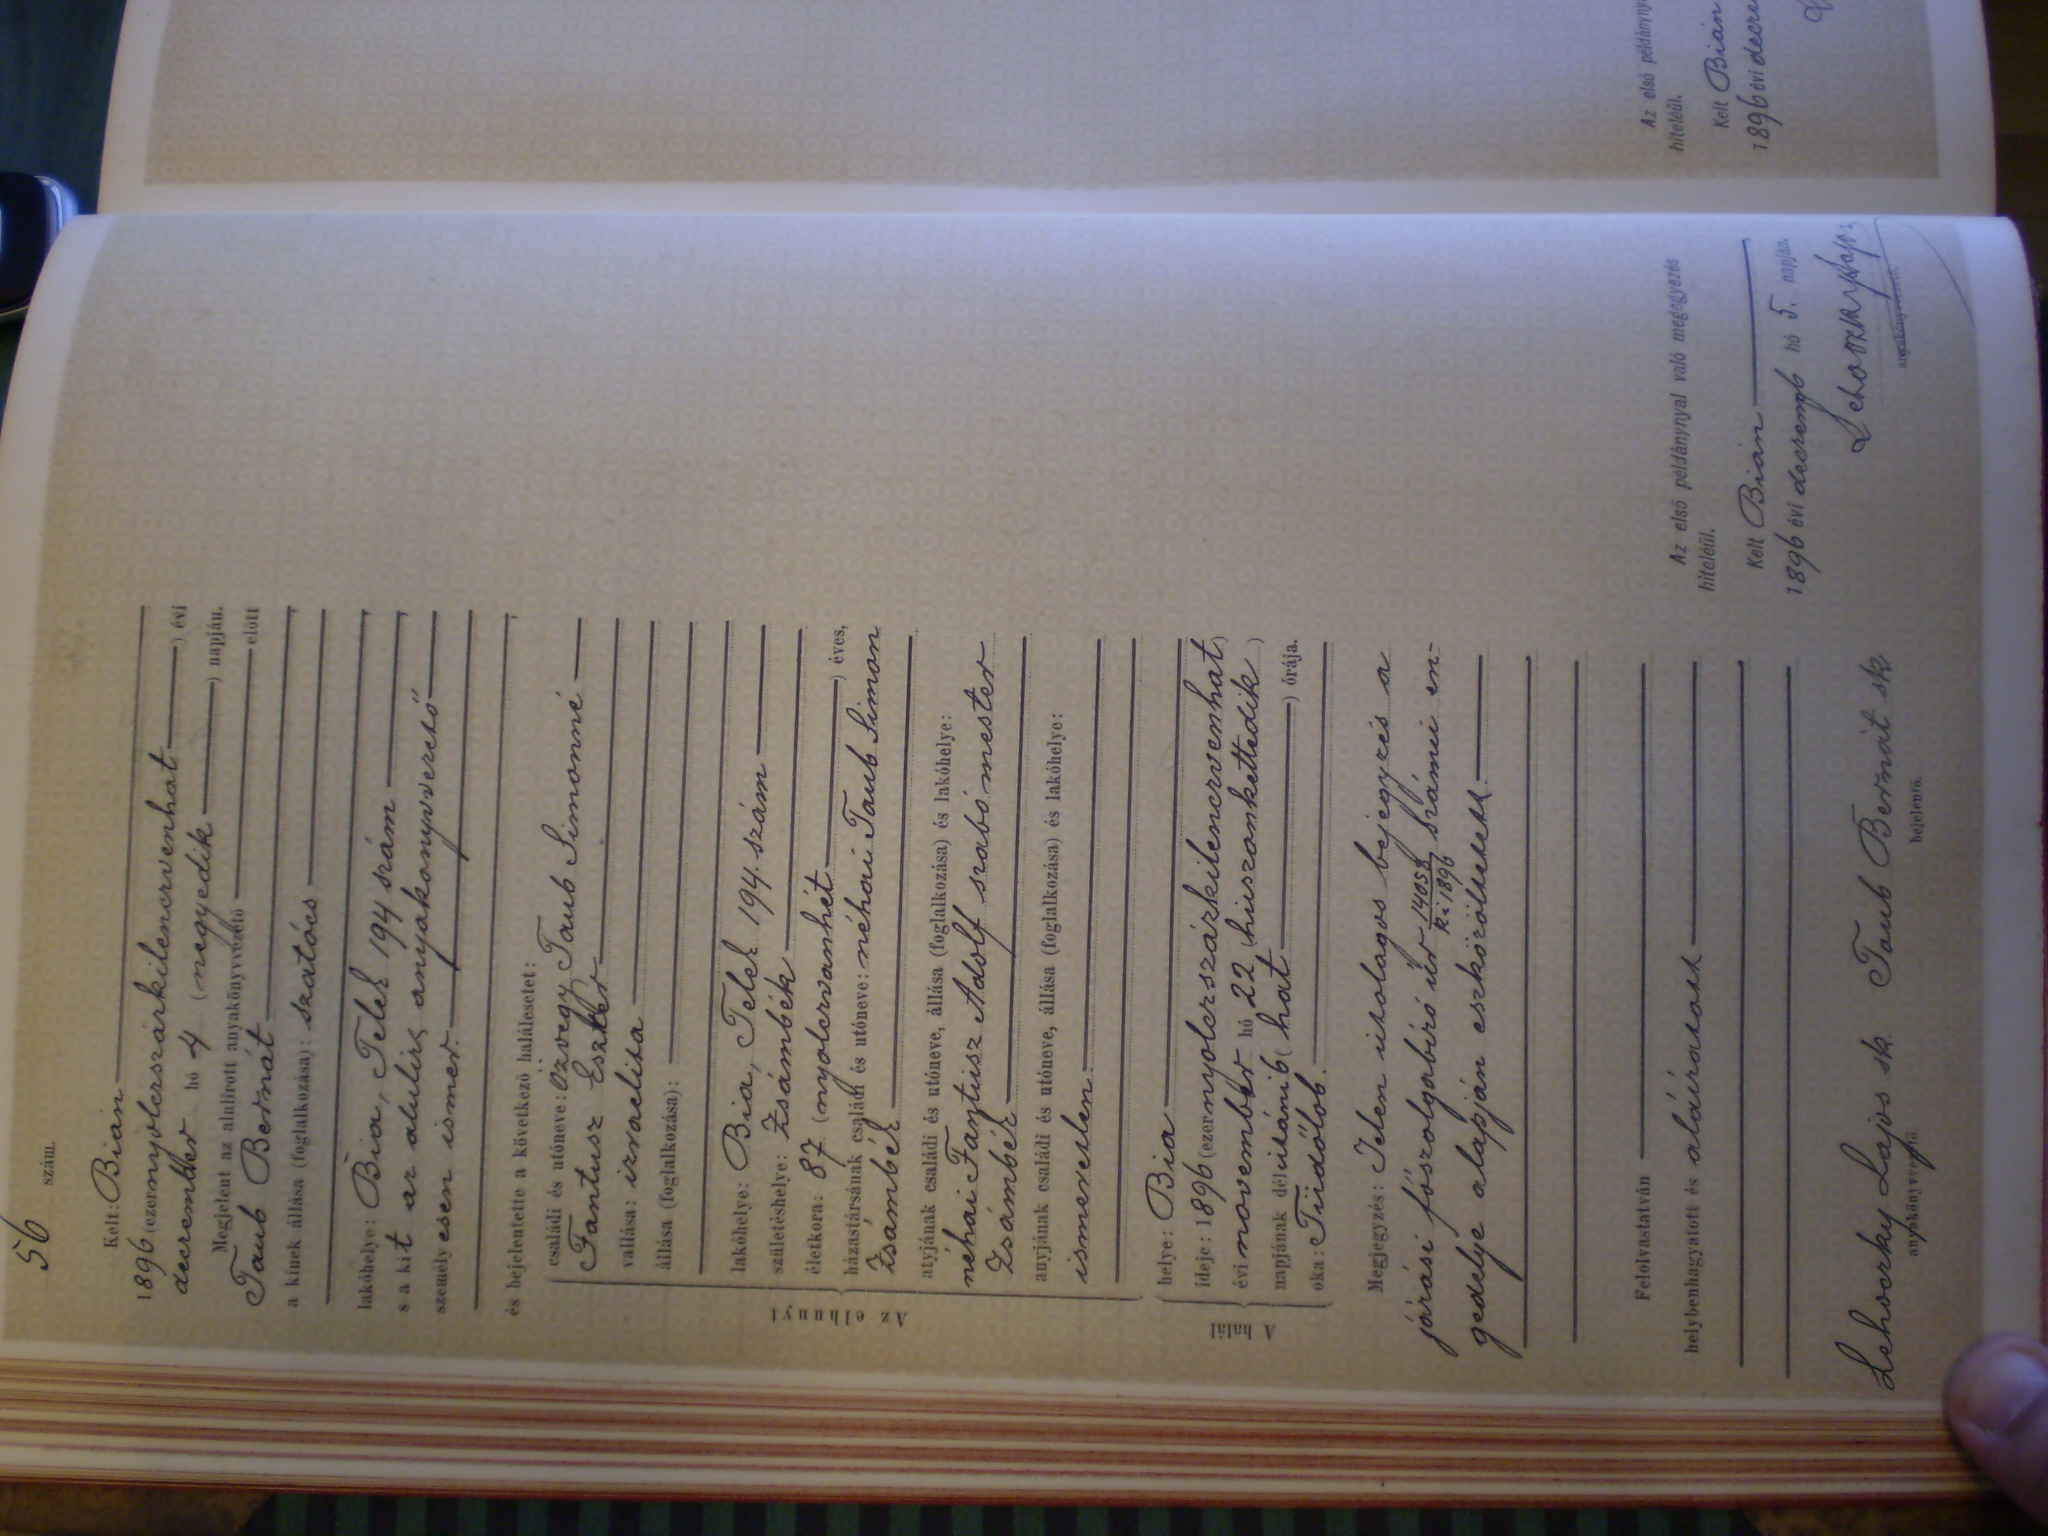 56 szám.
Kelt: Bián
1896 (ezernyolcszázkilencvenhat) évi
december hó 4 (negyedik) napján.
Megjelent az alulirott anyakönyvvezető előtt
Taub Bernát
a kinek állása (foglalkozása): szatócs
lakóhelye: Bia, Telek 194 szám
s a kit az alulirt anyakönyvvezető
személyesen ismer.
és bejelentette a következő halálesetet:
Az elhunyt
családi és utóneve: özvegy Taub Simonné
Fantusz Eszter
vallása: izraelita
állása (foglalkozása):
lakóhelye: Bia, Telek 194. szám
születéshelye: Zsámbék
életkora: 87 (nyolcvanhét) éves,
házastársának családi és utóneve: néhai Taub Simon
Zsámbék
atyjának családi és utóneve, állása (foglalkozása) és lakóhelye:
néhai Fantusz Adolf szabó mester
Zsámbék
anyjának családi és utóneve, állása (foglalkozása) és lakóhelye:
ismeretlen.
A halál
helye: Bia
ideje: 1896 (ezernyolcszázkilencvenhat)
évi november hó 22 (huszonkettedik)
napjának délutáni 6 (hat) órája.
oka: Tüdőlob.
Megjegyzés: Jelen utólagos bejegyzés a
járási főszolgabiró úr 14058/ki 1896 számú en-
gedélye alapján eszközöltetett.
Felolvastatván
helybenhagyatott és aláíratott
Lehoczky Lajos sk. Taub Bernát sk
anyakönyvvezető. bejelentő.
Az első példánynyal való megegyezés
hiteléül.
Kelt Bián
1896 évi decemb hó 5. napján.
Lehoczky Lajos
anyakönyvvezető.
Az első példányny
hiteléül.
Kelt Bián
1896 évi decem